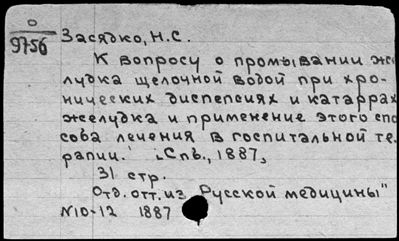 0
9756
Засядко, Н.С.
К вопросу о промывании же
лудка щелочной водой при хро-
нических диспепсиях и катаррах
желудка и применение этого спо
соба лечения в госпитальной те.
рапии. Спб., 1887,
31 стр.
Отд. отт. из „Русской медицины"
N10-12 1887